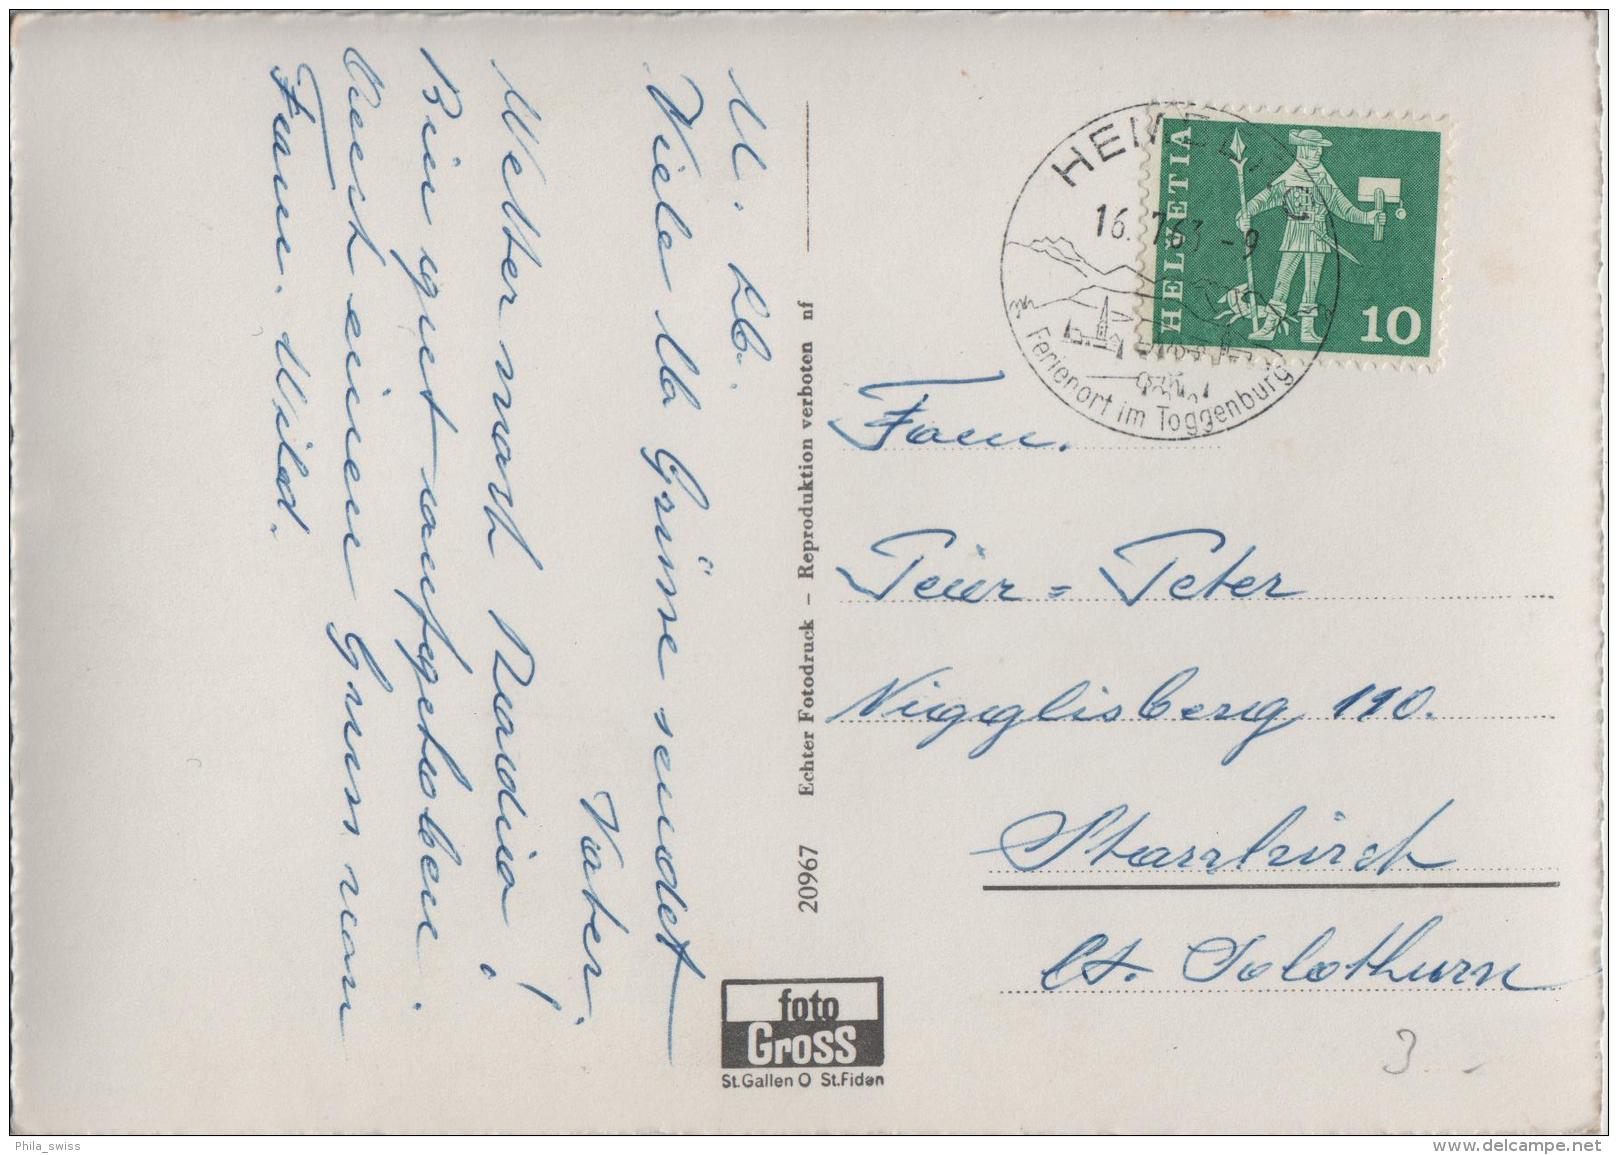 M. Lb.
Viele lb Grüsse sendet
Vater.
Wetter
Bin gut aufgehoben.
Auch einen Gruss von
Fam. Wild.
20967 Echter Fotodruck – Reproduktion verboten nf
foto
Gross
St.Gallen O St.Fiden
HEMBERG
16.7.63 -9
Ferienort im Toggenburg
HELVETIA
10
Fam.
Peter
Nigglisberg 110.
Starrkirch
Kt. Solothurn
3.-
Phila_swiss
www.delcampe.net